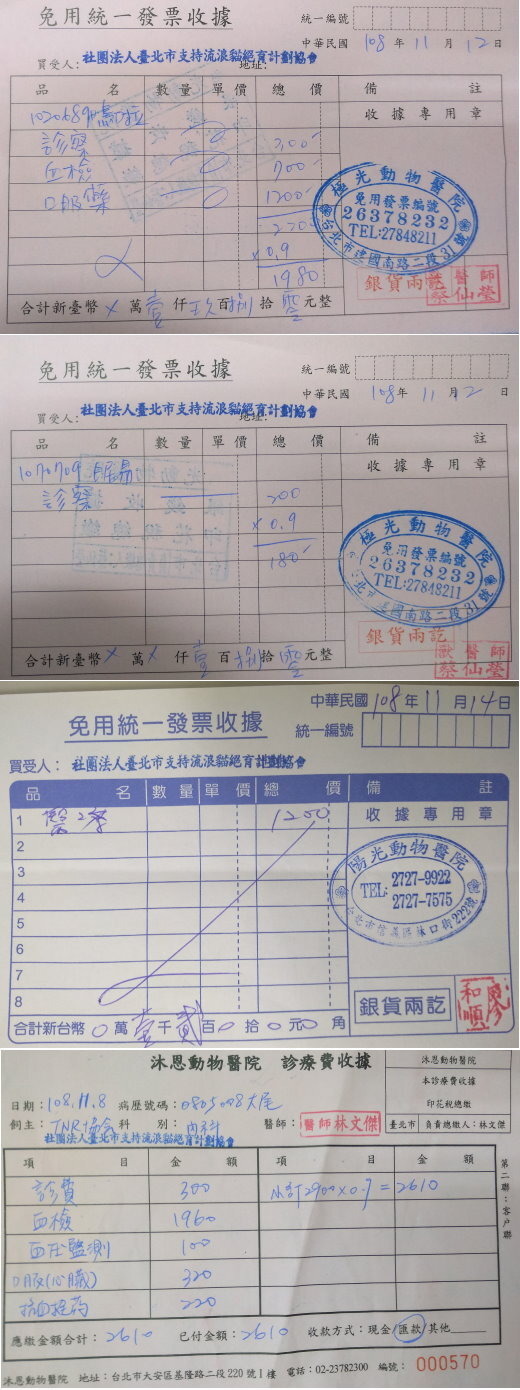 免用統一發票收據
統一編號
中華民國 108 年 11 月 12 日
買受人：社團法人臺北市支持流浪貓絕育計劃協會 地址：
品 名 數量 單價 總 價 備 註
收據專用章
診察 200
血檢 700
口服藥 1200
x 0.9
1980
極光動物醫院
免用發票編號
26378232
TEL:27848211
台北市建國南路二段31號
銀貨兩訖
獸醫師
蔡仙瑩
合計新臺幣 x 萬 壹 仟 玖 百 捌 拾 零 元整
免用統一發票收據
統一編號
中華民國 108 年 11 月 2 日
買受人：社團法人臺北市支持流浪貓絕育計劃協會 地址：
品 名 數量 單價 總 價 備 註
收據專用章
1070709
診察 200
x 0.9
180
極光動物醫院
免用發票編號
26378232
TEL:27848211
台北市建國南路二段31號
銀貨兩訖
獸醫師
蔡仙瑩
合計新臺幣 x 萬 x 仟 壹 百 捌 拾 零 元整
中華民國 108 年 11 月 14 日
免用統一發票收據
統一編號
買受人：社團法人臺北市支持流浪貓絕育計劃協會
品 名 數量 單價 總 價 備 註
1 1200
收據專用章
2
3
4
5
6
7
8
陽光動物醫院
TEL: 2727-9922
2727-7575
台北市信義區林口街222號
銀貨兩訖
合計新台幣 0 萬 壹 仟 貳 百 0 拾 0 元 0 角
沐恩動物醫院 診療費收據
沐恩動物醫院
本診療費收據
印花稅總繳
臺北市 負責總繳人：林文傑
日期：108.11.8 病歷號碼：0805008 大尾
飼主：TNR協會 科 別：內科 醫師：醫師林文傑
社團法人臺北市支持流浪貓絕育計劃協會
項 目 金 額 項 目 金 額
診費 300 小計2900×0.9=2610
血檢 1960
血壓監測 100
口服(心臟) 320
220
第二聯：客戶聯
應繳金額合計：2610 已付金額：2610 收款方式：現金/匯款/其他
沐恩動物醫院 地址：台北市大安區基隆路二段220號1樓 電話：02-23782300 編號：000570